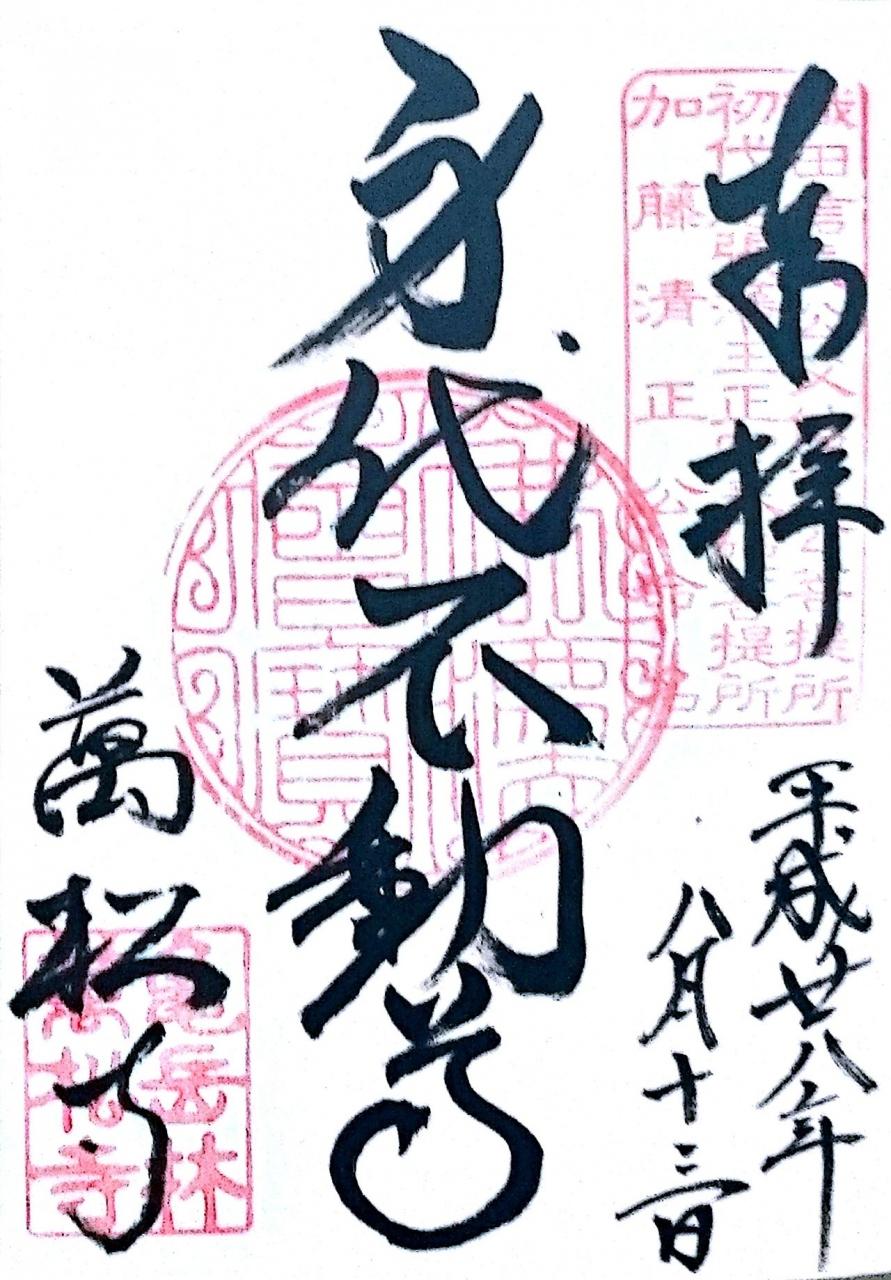 奉拝
織田信 公父 公菩提所
初代 主正 菩提所
加藤清正公
平成廿八年
八月十三日
身代不動尊
萬松寺
亀岳林
萬松寺